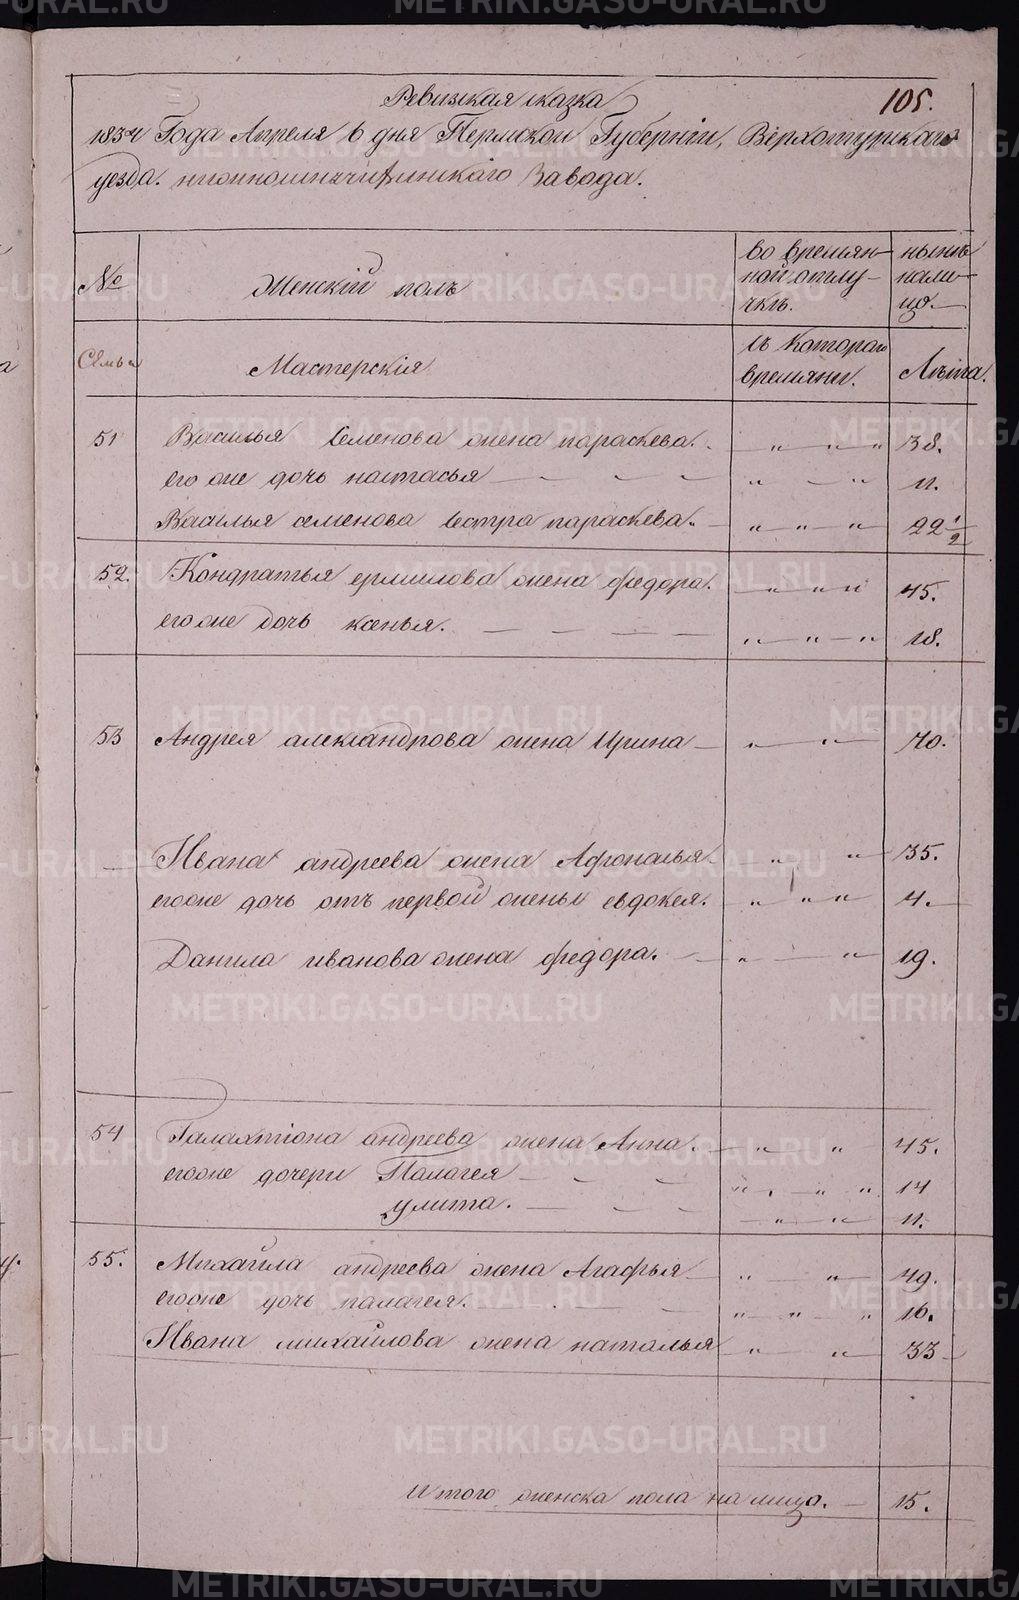 Ревизская сказка
105.
1834 Года Апреля 6 дня Пермской Губерніи, Верхотурскаго
уезда. Завода.
№
Женскій полъ
во времян-
ной отлу-
чкѣ.
нынѣ
нали-
цо.
Семьи
Мастерскія
съ котораго
времяни.
Лѣта.
51 Василья Семенова жена параскева. " " " 38.
его же дочь настасья " " 11.
Василья семенова сестра параскева. " " " 22 1/2
52. Кондратья ермилова жена федора. " " " 45.
его же дочь ксенья. " " " 18.
53 Андрея александрова жена Ирина " " 70.
Ивана андреева жена Афонасья " " 35.
его же дочь отъ первой жены евдокея. " " " 4.
Данила иванова жена федора. " " 19.
54 Галахтіона андреева жена Анна. " " 45.
его же дочери Палагея " " " 14
улита. " " 11.
55. Михаила андреева жена Агафья " " 49.
его же дочь палагея. " " " 16.
Ивана михайлова жена наталья " " 33
Итого женска пола на лицо. 15.
METRIKI.GASO-URAL.RU